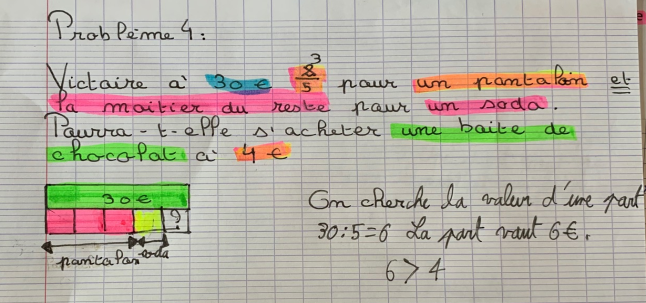 Problème 4:
Victoire à 30 € 3/5 pour un pantalon et
la moitier du reste pour un soda.
Pourra-t-elle s'acheter une boite de
chocolat à 4 €
30 €
?
pantalon soda
On cherche la valeur d'une part
30:5=6 La part vaut 6€.
6 > 4